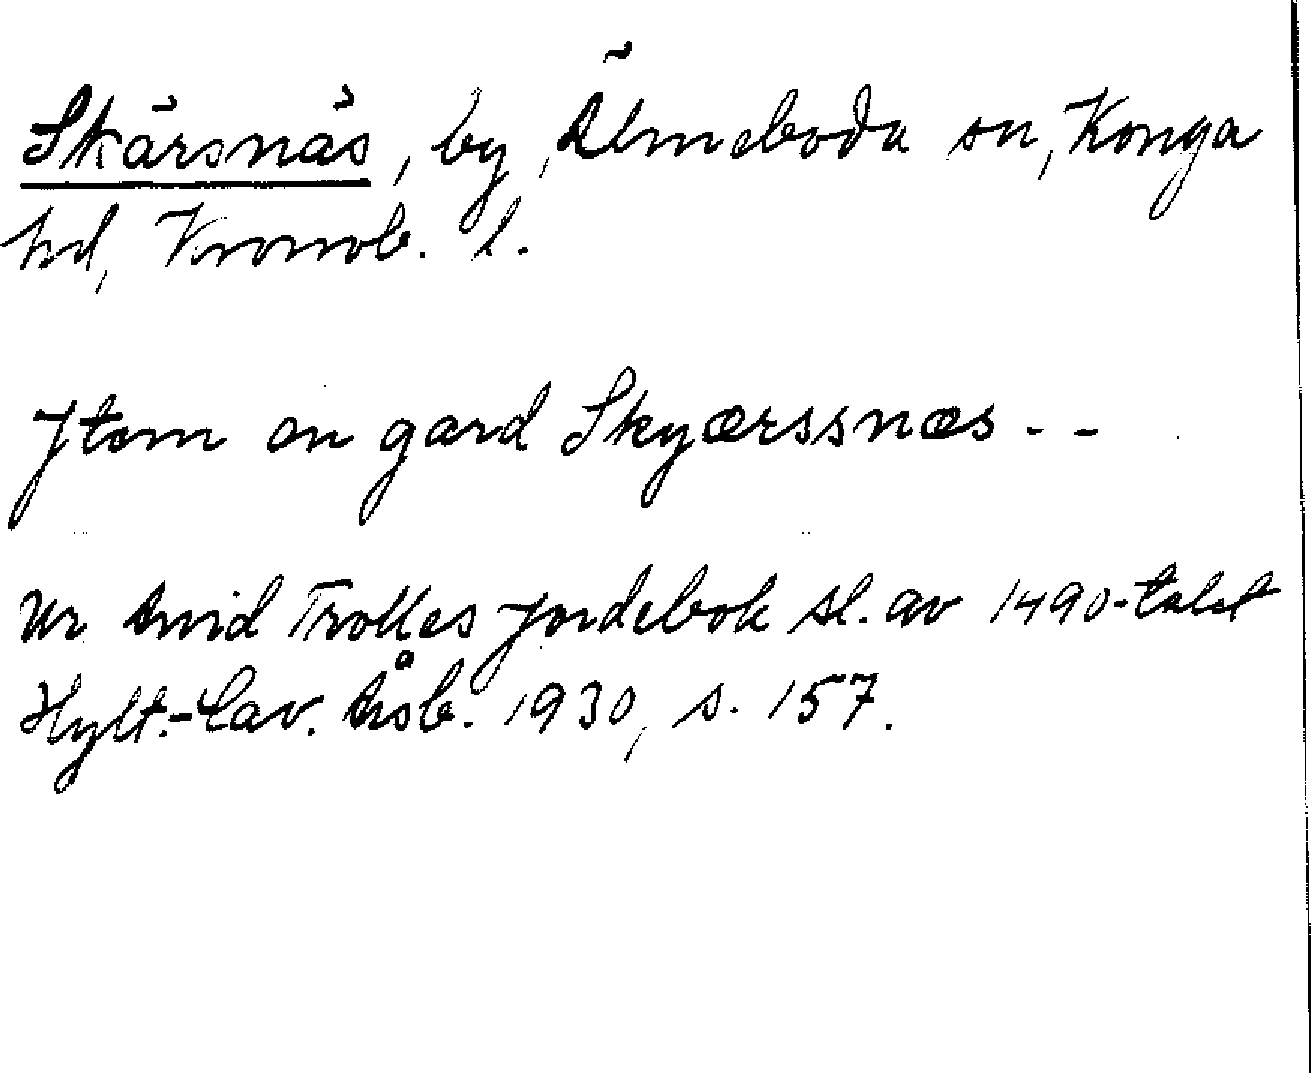 Skärsnäs, by, Älmeboda sn, Konga
hd, Kronob. l.
Jtem en gard Skyærssnæs - -
Ur Arvid Trolles jordebok sl. av 1490-talet
Hylt.-Cav. Årsb. 1930, s. 157.